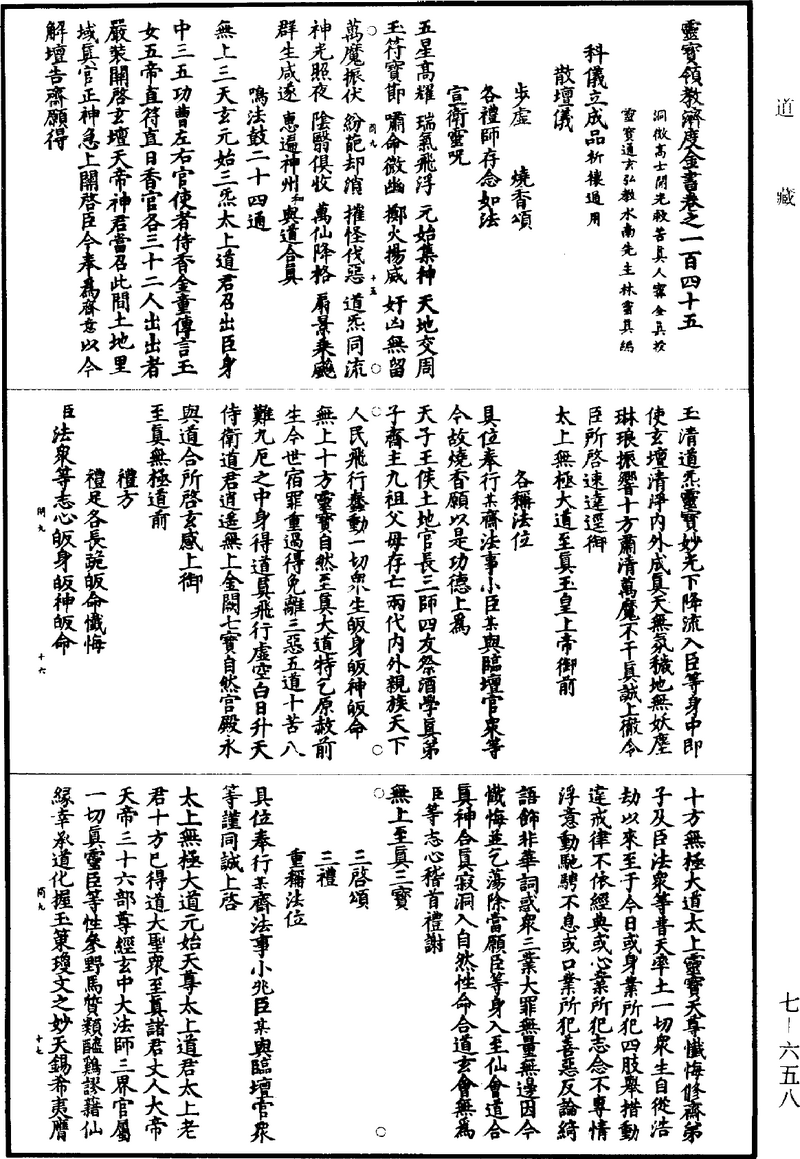 道藏
靈寶領教濟度金書卷之一百四十五
洞微高士開光救苦真人甯全真授
靈寶通玄弘教水南先生林靈真編
科儀立成品祈禳通用
散壇儀
步虛　燒香頌
各禮師存念如法
宣衛靈呪
五星高耀　瑞氣飛浮　元始集神　天地交周
玉符寶節　嘯命微幽　擲火揚威　奸凶無留
萬魔振伏　紛葩却消　摧怪伐惡　道炁同流
開九　十五
神光照夜　陰翳俱收　萬仙降格　扇景乘飈
群生咸遂　惠遍神州和與道合真
鳴法鼓二十四通
無上三天玄元始三炁太上道君召出臣身
中三五功曹左右官使者侍香金童傳言玉
女五帝直符直日香官各三十二人出出者
嚴裝關啓玄壇天帝神君當召此間土地里
域真官正神急上關啓臣今奉為齋意以今
解壇告齋願得
玉清道炁靈寶妙光下降流入臣等身中即
使玄壇清淨內外咸真天無氛穢地無妖塵
琳琅振響十方肅清萬魔不干真誠上徹令
臣所啓速達逕御
太上無極大道至真玉皇上帝御前
各稱法位
具位奉行某齋法事小臣某與臨壇官衆等
今故燒香願以是功德上為
天子王侯土地官長三師四友祭酒學真弟
子齋主九祖父母存亡兩代內外親族天下
人民飛行蠢動一切衆生皈身皈神皈命
無上十方靈寶自然至真大道特乞原赦前
生今世宿罪重過得免離三惡五道十苦八
難九厄之中身得道真飛行虛空白日升天
侍衛道君逍遙無上金闕七寶自然宮殿永
與道合所啓玄感上御
至真無極道前
禮方
禮足各長跪皈命懺悔
臣法衆等志心皈身皈神皈命
開九　十六
十方無極大道太上靈寶天尊懺悔修齋弟
子及臣法衆等普天率土一切衆生自從浩
劫以來至于今日或身業所犯四肢舉措動
違戒律不依經典或心業所犯志念不專情
浮意動馳騁不息或口業所犯善惡反論綺
語飾非華詞或衆三業大罪無量無邊因今
懺悔並乞蕩除當願臣等身入至仙會道合
真神合真寂洞入自然性命合道玄會無為
臣等志心稽首禮謝
無上至真三寶
三啓頌
三禮
重稱法位
具位奉行某齋法事小兆臣某與臨壇官衆
等謹同誠上啓
太上無極大道元始天尊太上道君太上老
君十方已得道大聖衆至真諸君丈人大帝
天帝三十六部尊經玄中大法師三界官屬
一切真靈臣等性參野馬質類醯鷄謬藉仙
緣幸承道化握玉策瓊文之妙天錫希夷膺
開九　十七
七－六五八